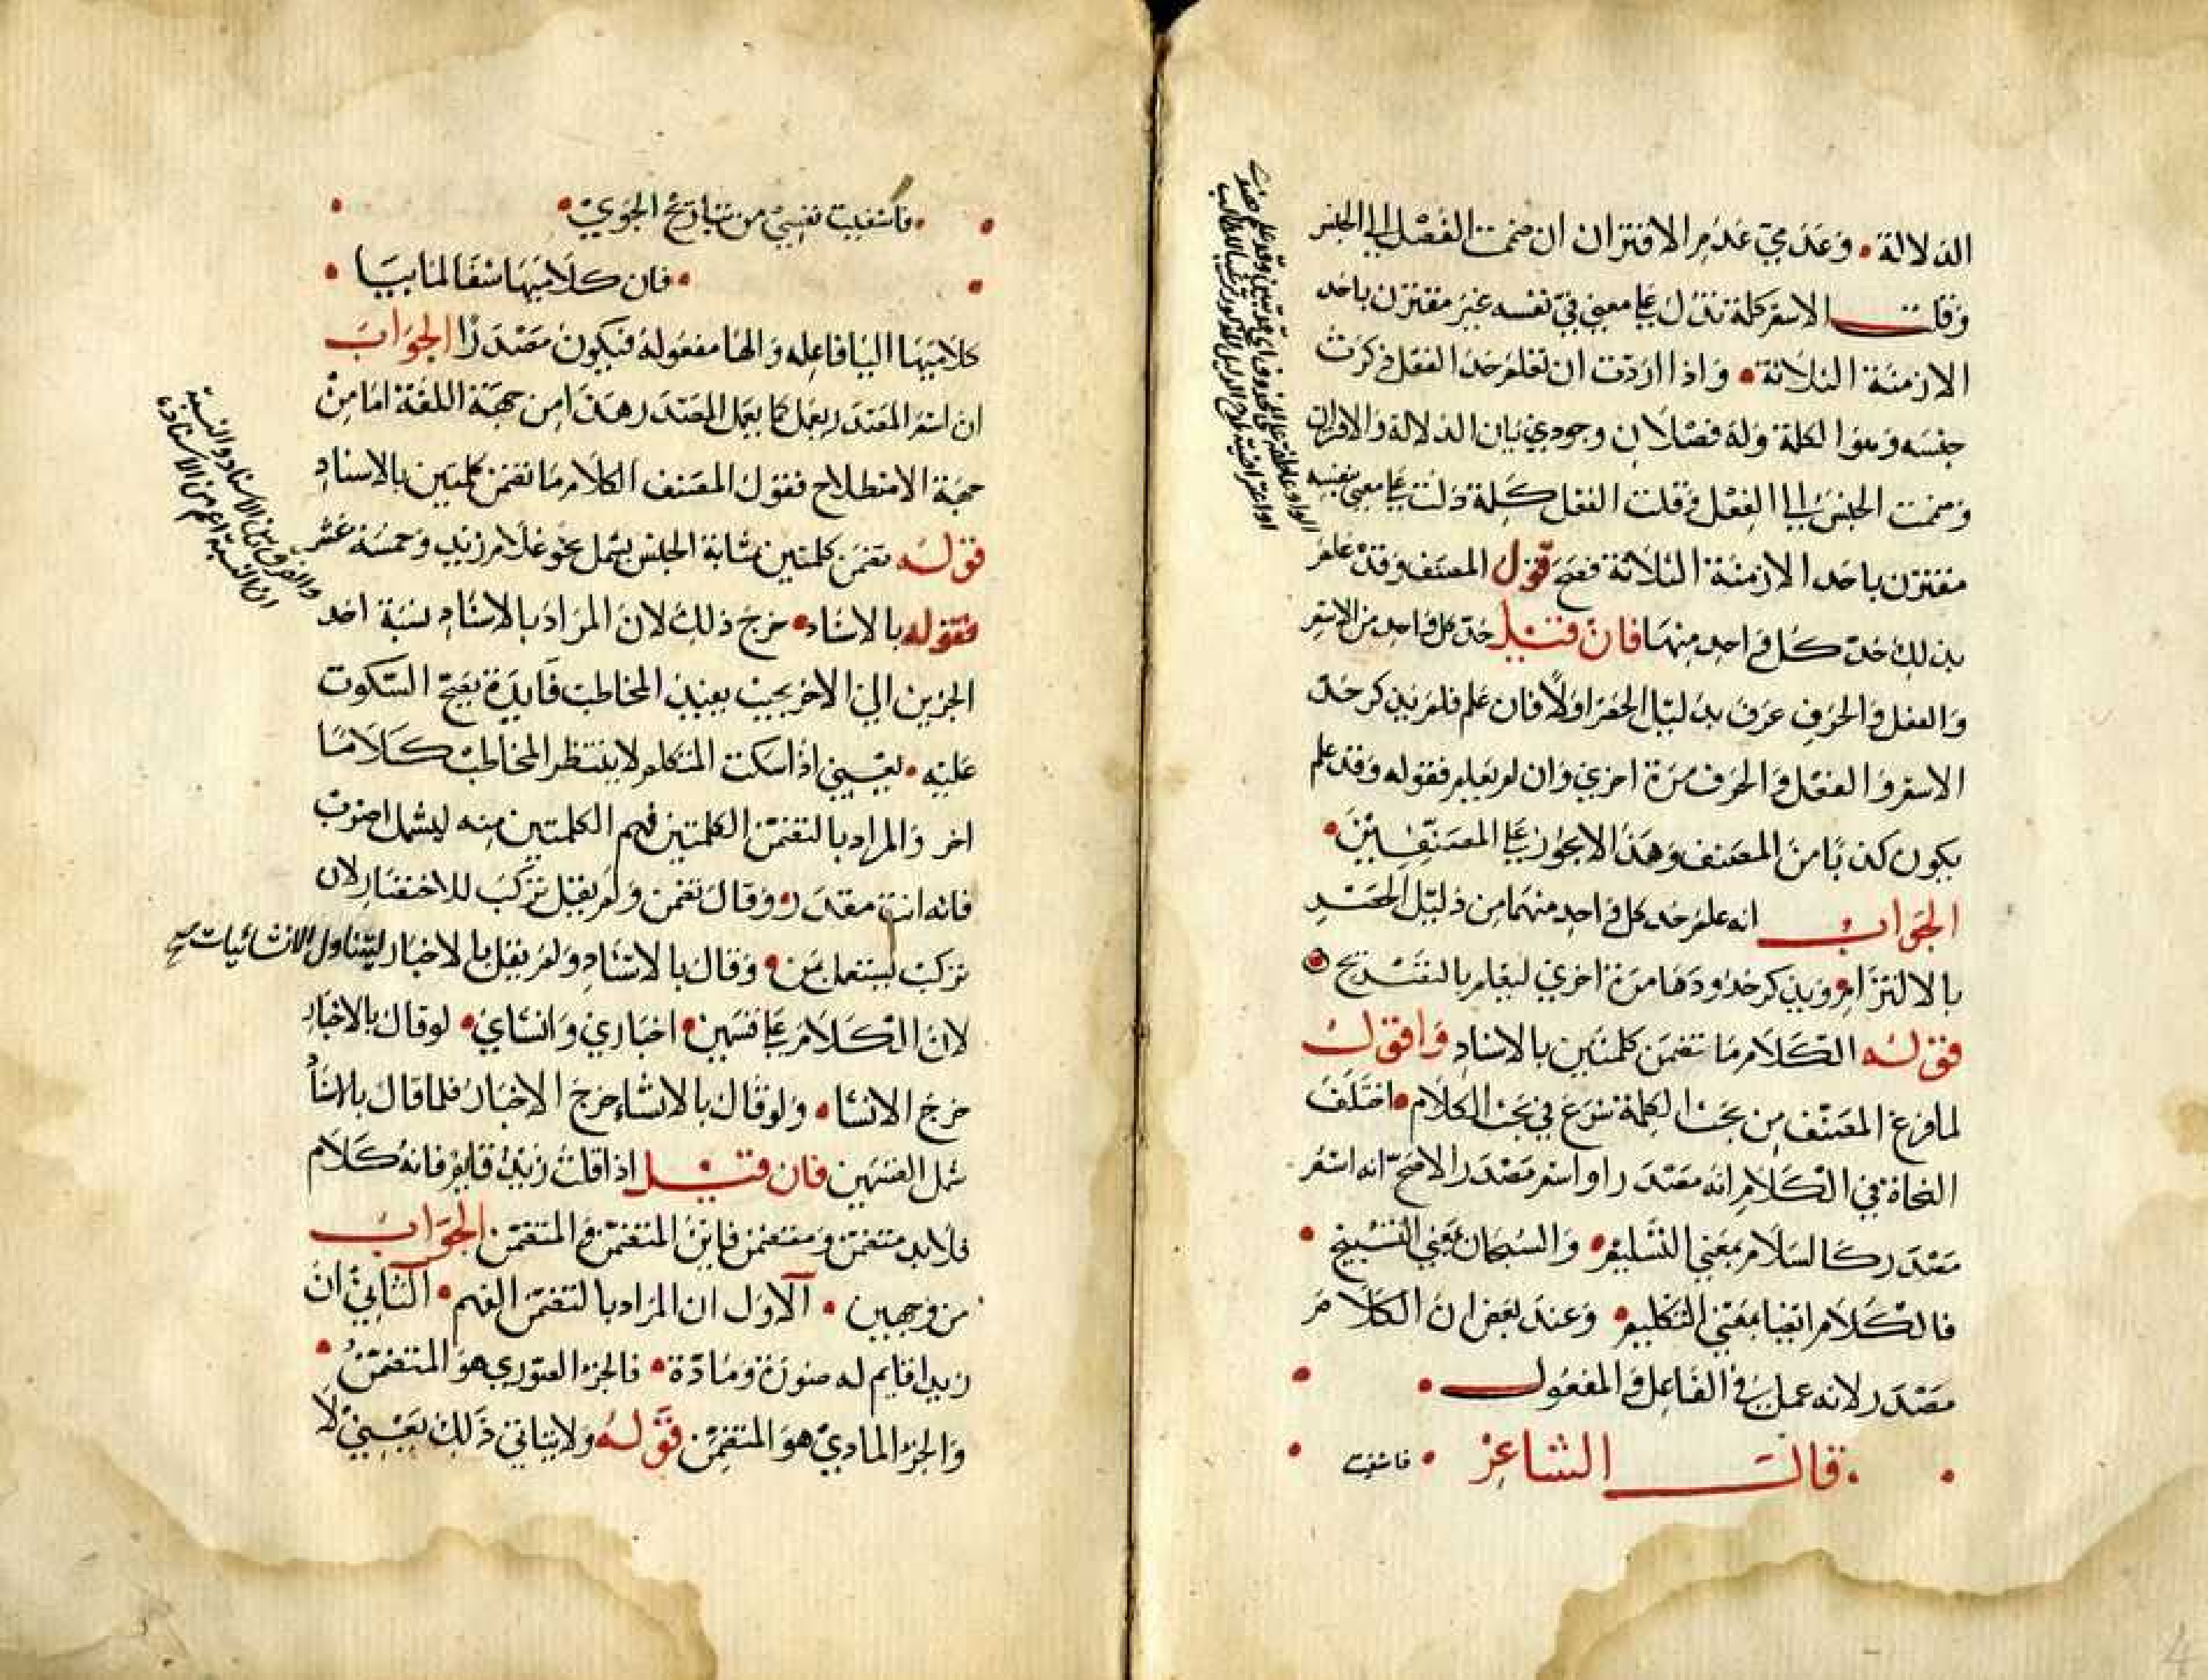 الدلالة • وعدمي عدم الاقتران ان ضممت الفصل الى الجنس
وقلت الاسم كلمة تدل على معنى في نفسه غير مقترن باحد
الازمنة الثلاثة • واذا اردت ان تعلم حد الفعل ذكرت
جنسه وهوا الكلمة وله فصلان وجوديان الدلالة والاقتران
وضممت الجنس الى الفصل وقلت الفعل كلمة دلت على معنى بنفسه
مقترن باحد الازمنة الثلاثة فصح قول المصنف وقد علم
بذلك حد كل واحد منها فان قيل حد كل واحد من الاسم
والفعل والحرف عرف بدليل الحصر اولا فان علم فلم يذكر حد
الاسم والفعل والحرف مرة اخرى وان لم يعلم فقوله وقد علم
يكون كذبا من المصنف وهذا لا يجوز على المصنفين •
الجواب انه علم حد كل واحد منهما من دليل الحصر
بالالتزام ويذكر حدودها مرة اخرى ليعلم بالتصريح
قوله الكلام ما تضمن كلمتين بالاسناد واقول
لما فرغ المصنف من بحث الكلمة شرع في بحث الكلام • اختلف
النحاة في الكلام انه مصدر او اسم مصدر الاصح انه اسم
مصدر كالسلام بمعنى التسليم • والسبحان بمعنى التسبيح •
فالكلام ايضا بمعنى التكليم • وعند بعض ان الكلام
مصدر لانه عمل في الفاعل والمفعول •
• قال الشاعر • فاشفيت
• فاشفيت نفسي من تباريح الجوى •
• فان كلاميها شفا لما بيا •
كلاميها اليا فاعله والها مفعوله فيكون مصدرا الجواب
ان اسم المصدر يعمل كما يعمل المصدر هذا من جهة اللغة اما من
جهة الاصطلاح فقول المصنف الكلام ما تضمن كلمتين بالاسناد
قوله تضمن كلمتين بمثابة الجنس يشمل نحو غلام زيد وخمسة عشر
فقوله بالاسناد • خرج ذلك لان المراد بالاسناد نسبة احد
الجزين الى الاخر بحيث يفيد المخاطب فايدة يصح السكوت
عليه • يعني اذا سكت المتكلم لا ينتظر المخاطب كلاما
اخر والمراد بالتضمن الكلمتين فهم الكلمتين منه ليشمل اضرب
فانه انت مقدر • وقال تضمن ولم يقل تركب للاختصار لان
تركب يستعمل بمن • وقال بالاسناد ولم يقل بالاخبار ليتناول الانشائيات صح
لان الكلام على قسمين • اخباري وانشاي • لو قال بالاخبار
خرج الانشا • ولو قال بالانشاء خرج الاخبار فلما قال بالاسناد
شمل القسمين فان قيل اذا قلت زيد قايم فانه كلام
فلا بد متضمن ومتضمن فاين المتضمن والمتضمن الجواب
من وجهين • الاول ان المراد بالتضمن الفهم • الثاني ان
زيدا قايم له صورة ومادة • فالجزء الصوري هو المتضمن •
والجزء المادي هو المتضمن قوله ولا يتاتى ذلك يعني لا
والفرق بين الاسناد والنسبة
ان النسبة اعم من الاسناد